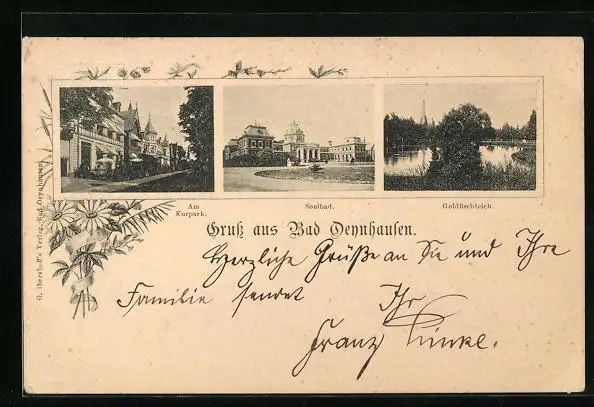 Am
Kurpark.
Soolbad.
Goldfischteich.
Gruß aus Bad Oeynhausen.
Herzliche Grüße an Sie und Ihre
Familie sendet Ihr
Franz Linke.
G. Ibershoff's Verlag, Bad Oeynhausen